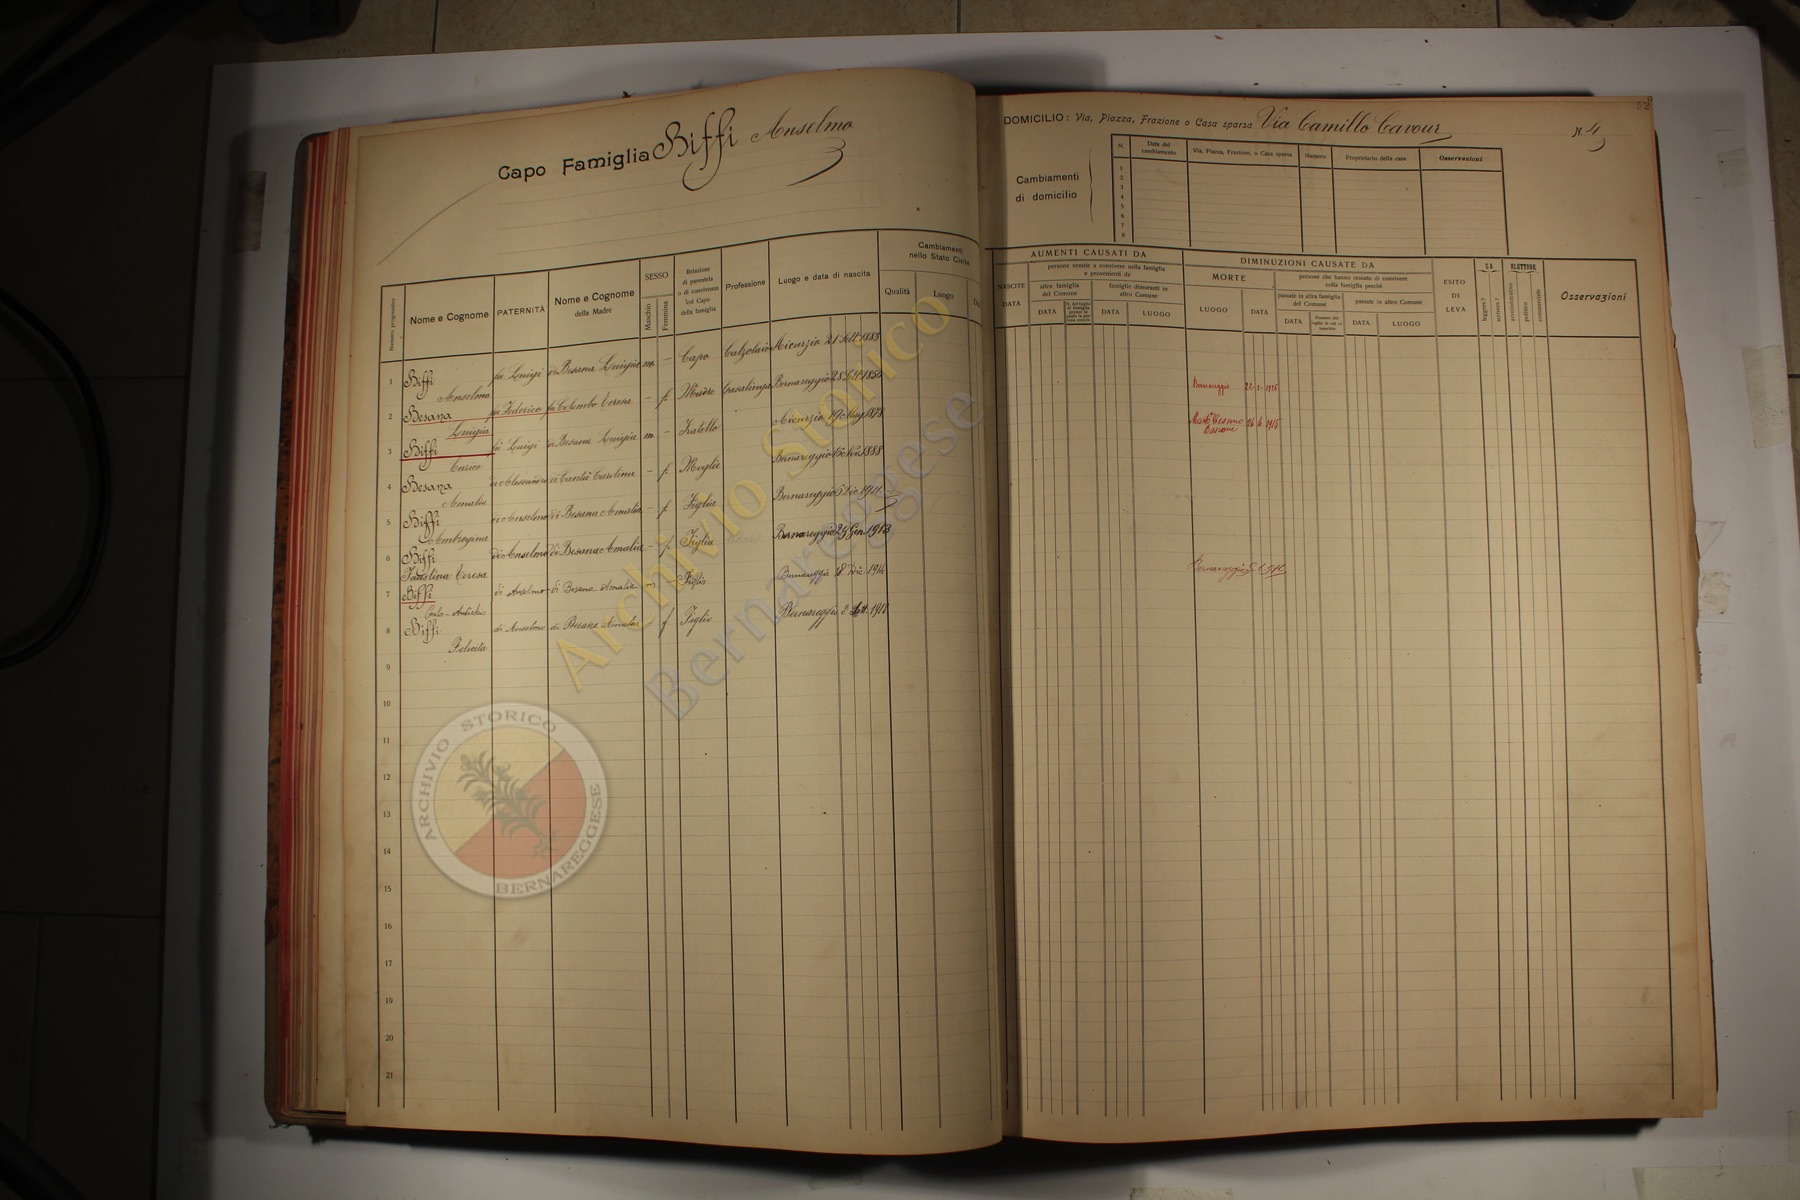 Capo Famiglia Biffi Anselmo
Cambiamenti
nello Stato Civile
Numero progressivo
Nome e Cognome
PATERNITÀ
Nome e Cognome
della Madre
SESSO
Maschio
Femmina
Relazione
di parentela
o di convivenza
col Capo
della famiglia
Professione
Luogo e data di nascita
Qualità
Luogo
1 Biffi fu Luigi di Besana Luigia m. - Capo Calzolaio Aicurzio 21 Sett. 1883
Anselmo
2 Besana fu Federico fu Colombo Teresa - f. Madre Casalinga Bernareggio 28 1850
Luigia
3 Biffi fu Luigi di Besana Luigia m - Fratello Aicurzio 19 1878
Enrico
4 Besana di Alessandro di Cantù Carolina - f. Moglie Bernareggio 15 1888
Amalia
5 Biffi di Anselmo di Besana Amalia - f. Figlia Bernareggio 5 Dic. 1911
Ambrogina
6 Biffi di Anselmo di Besana Amalia - f. Figlia Bernareggio 29 Gen. 1913
Faustina Teresa
7 Biffi di Anselmo di Besana Amalia m Figlio Bernareggio 8 Dic. 1914
Carlo
8 Biffi di Anselmo di Besana Amalia f Figlia Bernareggio 2 Sett. 1918
Felicita
9
10
11
12
13
14
15
16
17
18
19
20
21
52
DOMICILIO: Via, Piazza, Frazione o Casa sparsa Via Camillo Cavour N. 4
Cambiamenti
di domicilio
N.
Data del
cambiamento
Via, Piazza, Frazione, o Casa sparsa
Numero
Proprietario della casa
Osservazioni
1
2
3
4
5
6
7
8
AUMENTI CAUSATI DA
NASCITE
DATA
persone venute a convivere nella famiglia
e provenienti da
altra famiglia
del Comune
DATA
famiglie dimoranti in
altro Comune
DATA
LUOGO
DIMINUZIONI CAUSATE DA
MORTE
LUOGO
DATA
persone che hanno cessato di convivere
colla famiglia perchè
passate in altra famiglia
del Comune
DATA
passate in altro Comune
DATA
LUOGO
ESITO
DI
LEVA
SA
leggere?
scrivere?
ELETTORE
amministrativo
politico
commerciale
Osservazioni
Bernareggio
Bernareggio
Archivio Storico
Bernareggese
ARCHIVIO STORICO
BERNAREGGESE